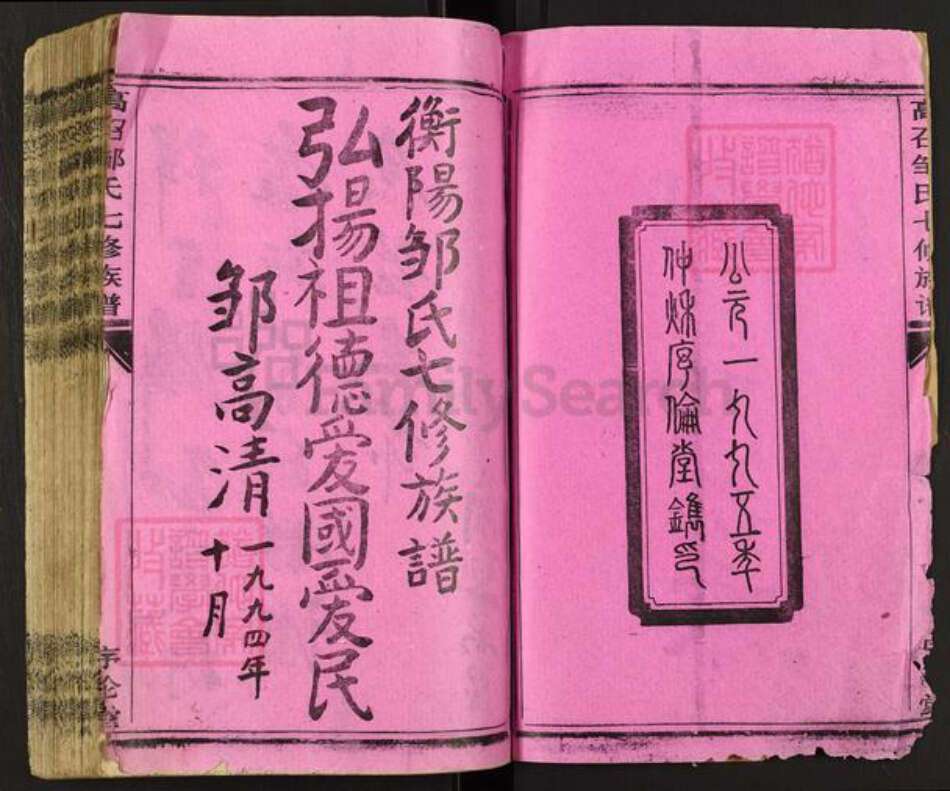 公元一九九五年
仲秋序倫堂鐫印
高石邹氏七修族谱
衡陽邹氏七修族譜
弘揚祖德愛國愛民
邹高清
一九九四年
十月
高石邹氏七修族譜
序伦堂
FamilySearch